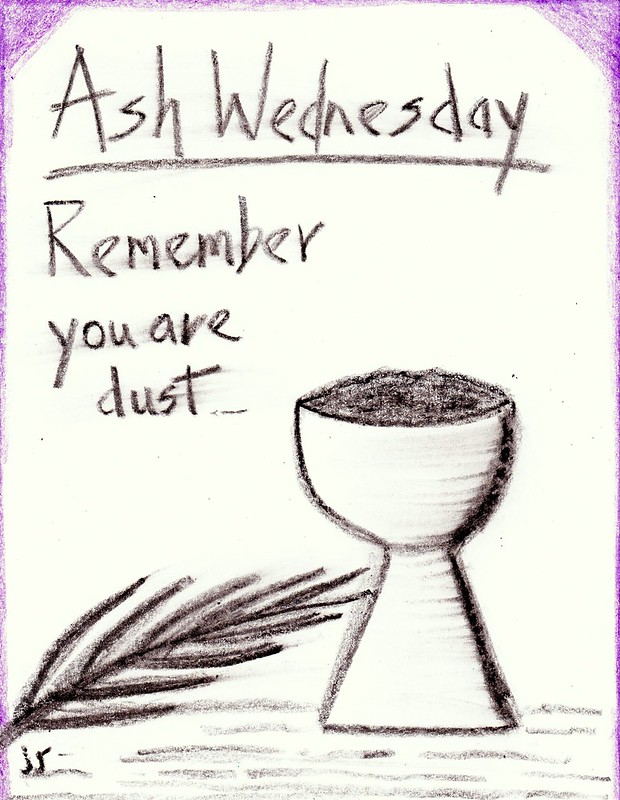 Ash Wednesday
Remember
you are
dust...